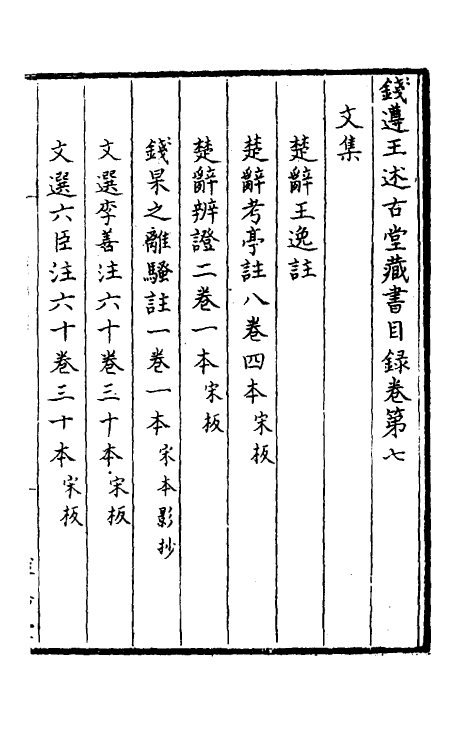 錢遵王述古堂藏書目録卷第七
文集
楚辭王逸註
楚辭考亭註八卷四本宋板
楚辭辨證二卷一本宋板
錢杲之離騷註一卷一本宋本影抄
文選李善注六十卷三十本宋板
文選六臣注六十卷三十本宋板